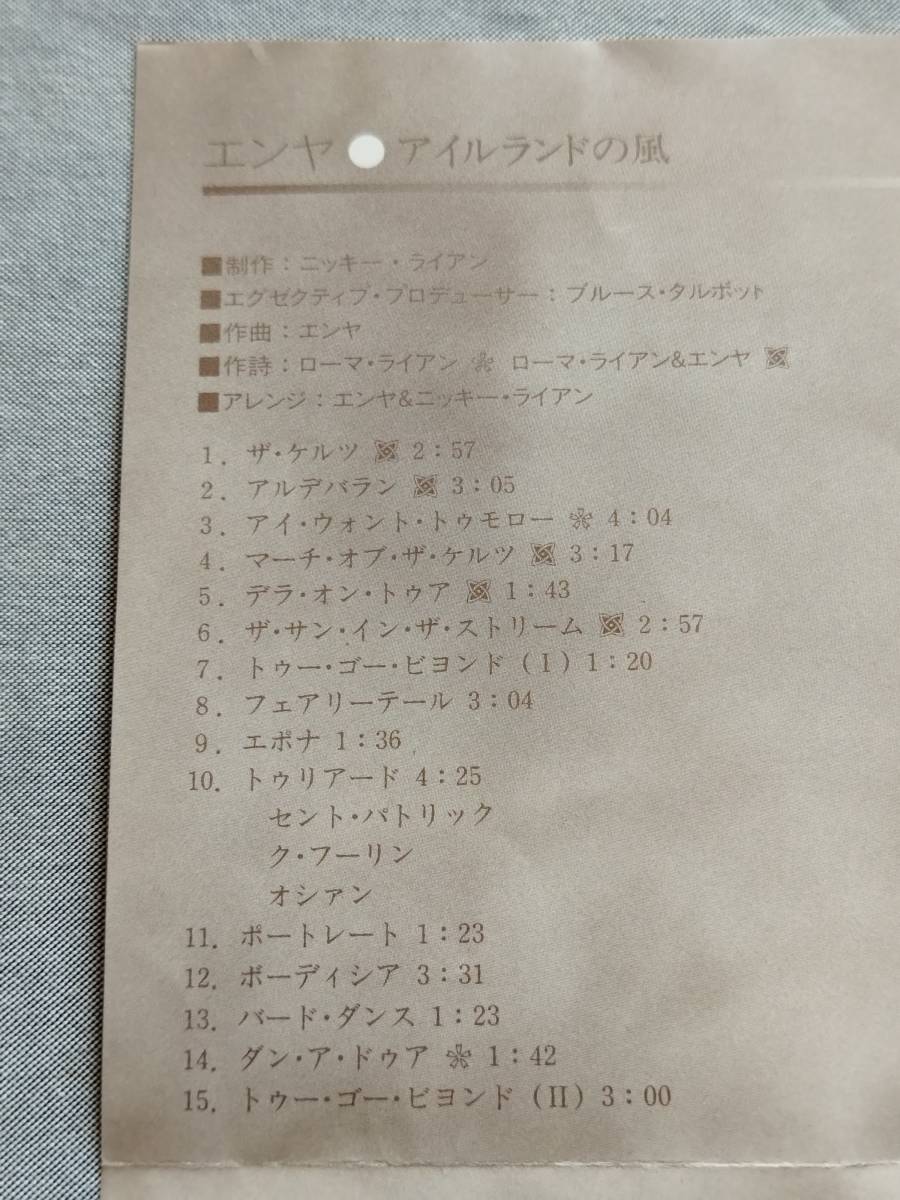 エンヤ●アイルランドの風
■制作：ニッキー・ライアン
■エグゼクティブ・プロデューサー：ブルース・タルボット
■作曲：エンヤ
■作詩：ローマ・ライアン ローマ・ライアン&エンヤ
■アレンジ：エンヤ&ニッキー・ライアン
1．ザ・ケルツ 2：57
2．アルデバラン 3：05
3．アイ・ウォント・トゥモロー 4：04
4．マーチ・オブ・ザ・ケルツ 3：17
5．デラ・オン・トゥア 1：43
6．ザ・サン・イン・ザ・ストリーム 2：57
7．トゥー・ゴー・ビヨンド（I）1：20
8．フェアリーテール 3：04
9．エポナ 1：36
10．トゥリアード 4：25
セント・パトリック
ク・フーリン
オシァン
11．ポートレート 1：23
12．ボーディシア 3：31
13．バード・ダンス 1：23
14．ダン・ア・ドゥア 1：42
15．トゥー・ゴー・ビヨンド（II）3：00